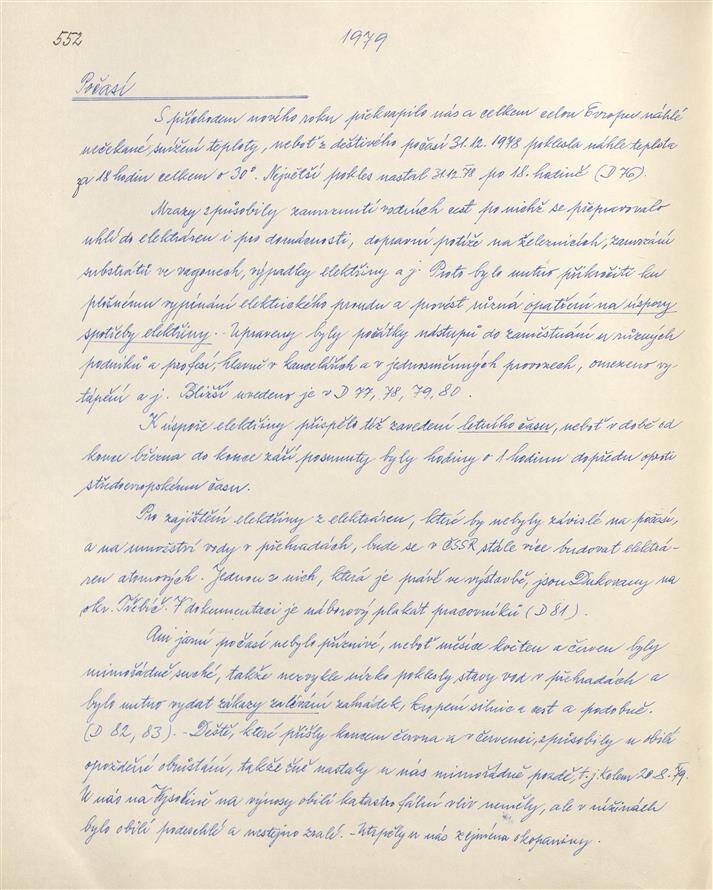 552
1979
Počasí
S příchodem nového roku překvapilo nás a celkem celou Evropu náhlé
nečekané snížení teploty, neboť z deštivého počasí 31.12. 1978 poklesla náhle teplota
za 18 hodin celkem o 30°. Největší pokles nastal 31.12.78 po 18. hodině (D 76).
Mrazy způsobily zamrznutí vodních cest po nichž se přepravovalo
uhlí do elektráren i pro domácnosti, dopravní potíže na železnicích, zamrzání
substrátů ve vagonech, výpadky elektřiny a j. Proto bylo nutno přikročiti ku
plošnému vypínání elektrického proudu a provést různá opatření na úspory
spotřeby elektřiny. - Upraveny byly počátky nástupů do zaměstnání u různých
podniků a profesí, hlavně v kancelářích a v jednosměnných provozech, omezeno vy-
tápění a j. Bližší uvedeno je v D 77, 78, 79, 80.
K úspoře elektřiny přispělo též zavedení letního času, neboť v době od
konce března do konce září posunuty byly hodiny o 1 hodinu dopředu oproti
středoevropskému času.
Pro zajištění elektřiny z elektráren, které by nebyly závislé na počasí,
a na množství vody v přehradách, bude se v ČSSR stále více budovat elektrá-
ren atomových. Jednou z nich, která je právě ve výstavbě, jsou Dukovany na
okr. Třebíč. V dokumentaci je náborový plakát pracovníků (D 81).
Ani jarní počasí nebylo příznivé, neboť měsíce květen a červen byly
mimořádně suché, takže nezvykle nízko poklesly stavy vod v přehradách a
bylo nutno vydat zákazy zalévání zahrádek, kropení silnic a cest a podobně.
(D 82, 83). - Deště, které přišly koncem června a v červenci, způsobily u obilí
opožděné obrůstání, takže žně nastaly u nás mimořádně pozdě, t. j. kolem 20. 8. 79.
U nás na Vysočině na výnosy obilí katastrofální vliv neměly, ale v nížinách
bylo obilí podeschlé a nestejno zralé. - Utrpěly u nás zejména okopaniny.